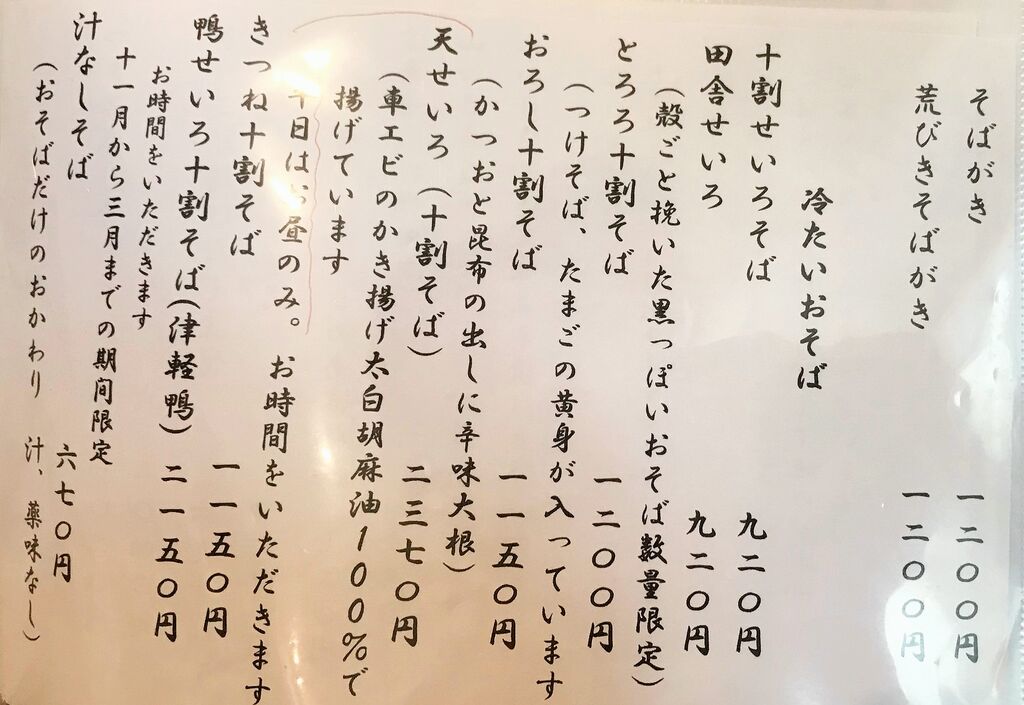 そばがき 一二〇〇円
荒びきそばがき 一二〇〇円
冷たいおそば
十割せいろそば 九二〇円
田舎せいろ 九二〇円
(殻ごと挽いた黒っぽいおそば数量限定)
とろろ十割そば 一二〇〇円
(つけそば、たまごの黄身が入っています
おろし十割そば 一一五〇円
(かつおと昆布の出しに辛味大根)
天せいろ(十割そば) 二三七〇円
(車エビのかき揚げ太白胡麻油100%で
揚げています
平日はお昼のみ。お時間をいただきます
きつね十割そば 一一五〇円
鴨せいろ十割そば(津軽鴨) 二一五〇円
お時間をいただきます
十一月から三月までの期間限定
汁なしそば 六七〇円
(おそばだけのおかわり 汁、薬味なし)